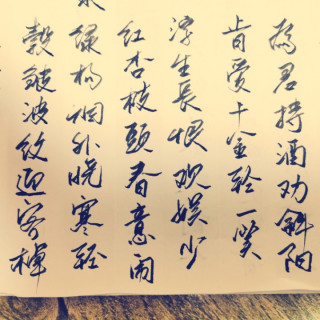 縠皱波纹迎客棹
绿杨烟外晓寒轻
红杏枝头春意闹
浮生长恨欢娱少
肯爱千金轻一笑
为君持酒劝斜阳